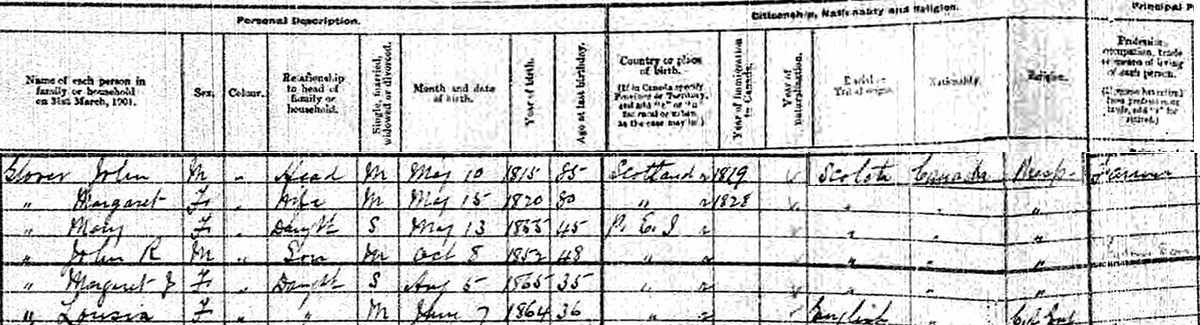 Personal Description. Citizenship, Nationality and Religion. Principal P
Name of each person in family or household on 31st March, 1901. Sex. Colour. Relationship to head of family or household. Single, married, widowed or divorced. Month and date of birth. Year of birth. Age at last birthday. Country or place of birth. (If in Canada specify Province or Territory, and add "r" or "u" for rural or urban as the case may be.) Year of immigration to Canada. Year of naturalization. Racial or Tribal origin. Nationality. Religion. Profession, occupation, trade or means of living of each person.
Glover John M " Head M May 10 1815 85 Scotland r 1819 Scotch Canada Presp. Farmer
" Margaret F " Wife M May 15 1820 80 " r 1828 " " "
" Mary F " Daught S May 13 1855 45 P. E. I r " " "
" John R M " Son M Oct 8 1852 48 " r " " "
" Margaret J F " Daught S Aug 5 1865 35 " r " " "
" Lousia F " " M June 7 1864 36 " r English "